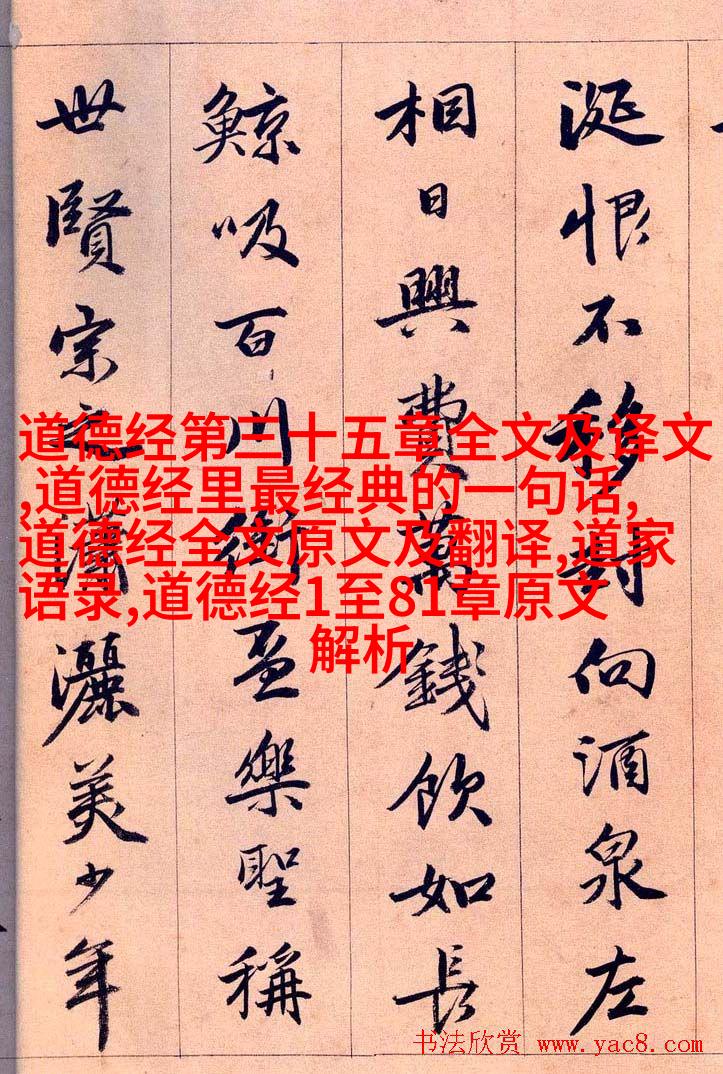 涎恨不移封向酒泉左
相日興費萬錢飲如長
鯨吸百川銜盃樂聖稱
世賢宗之瀟灑美少年
道德经第三十五章全文及译文
,道德经里最经典的一句话,
道德经全文原文及翻译,道家
语录,道德经1至81章原文
解析
书法欣赏 www.yac8.com